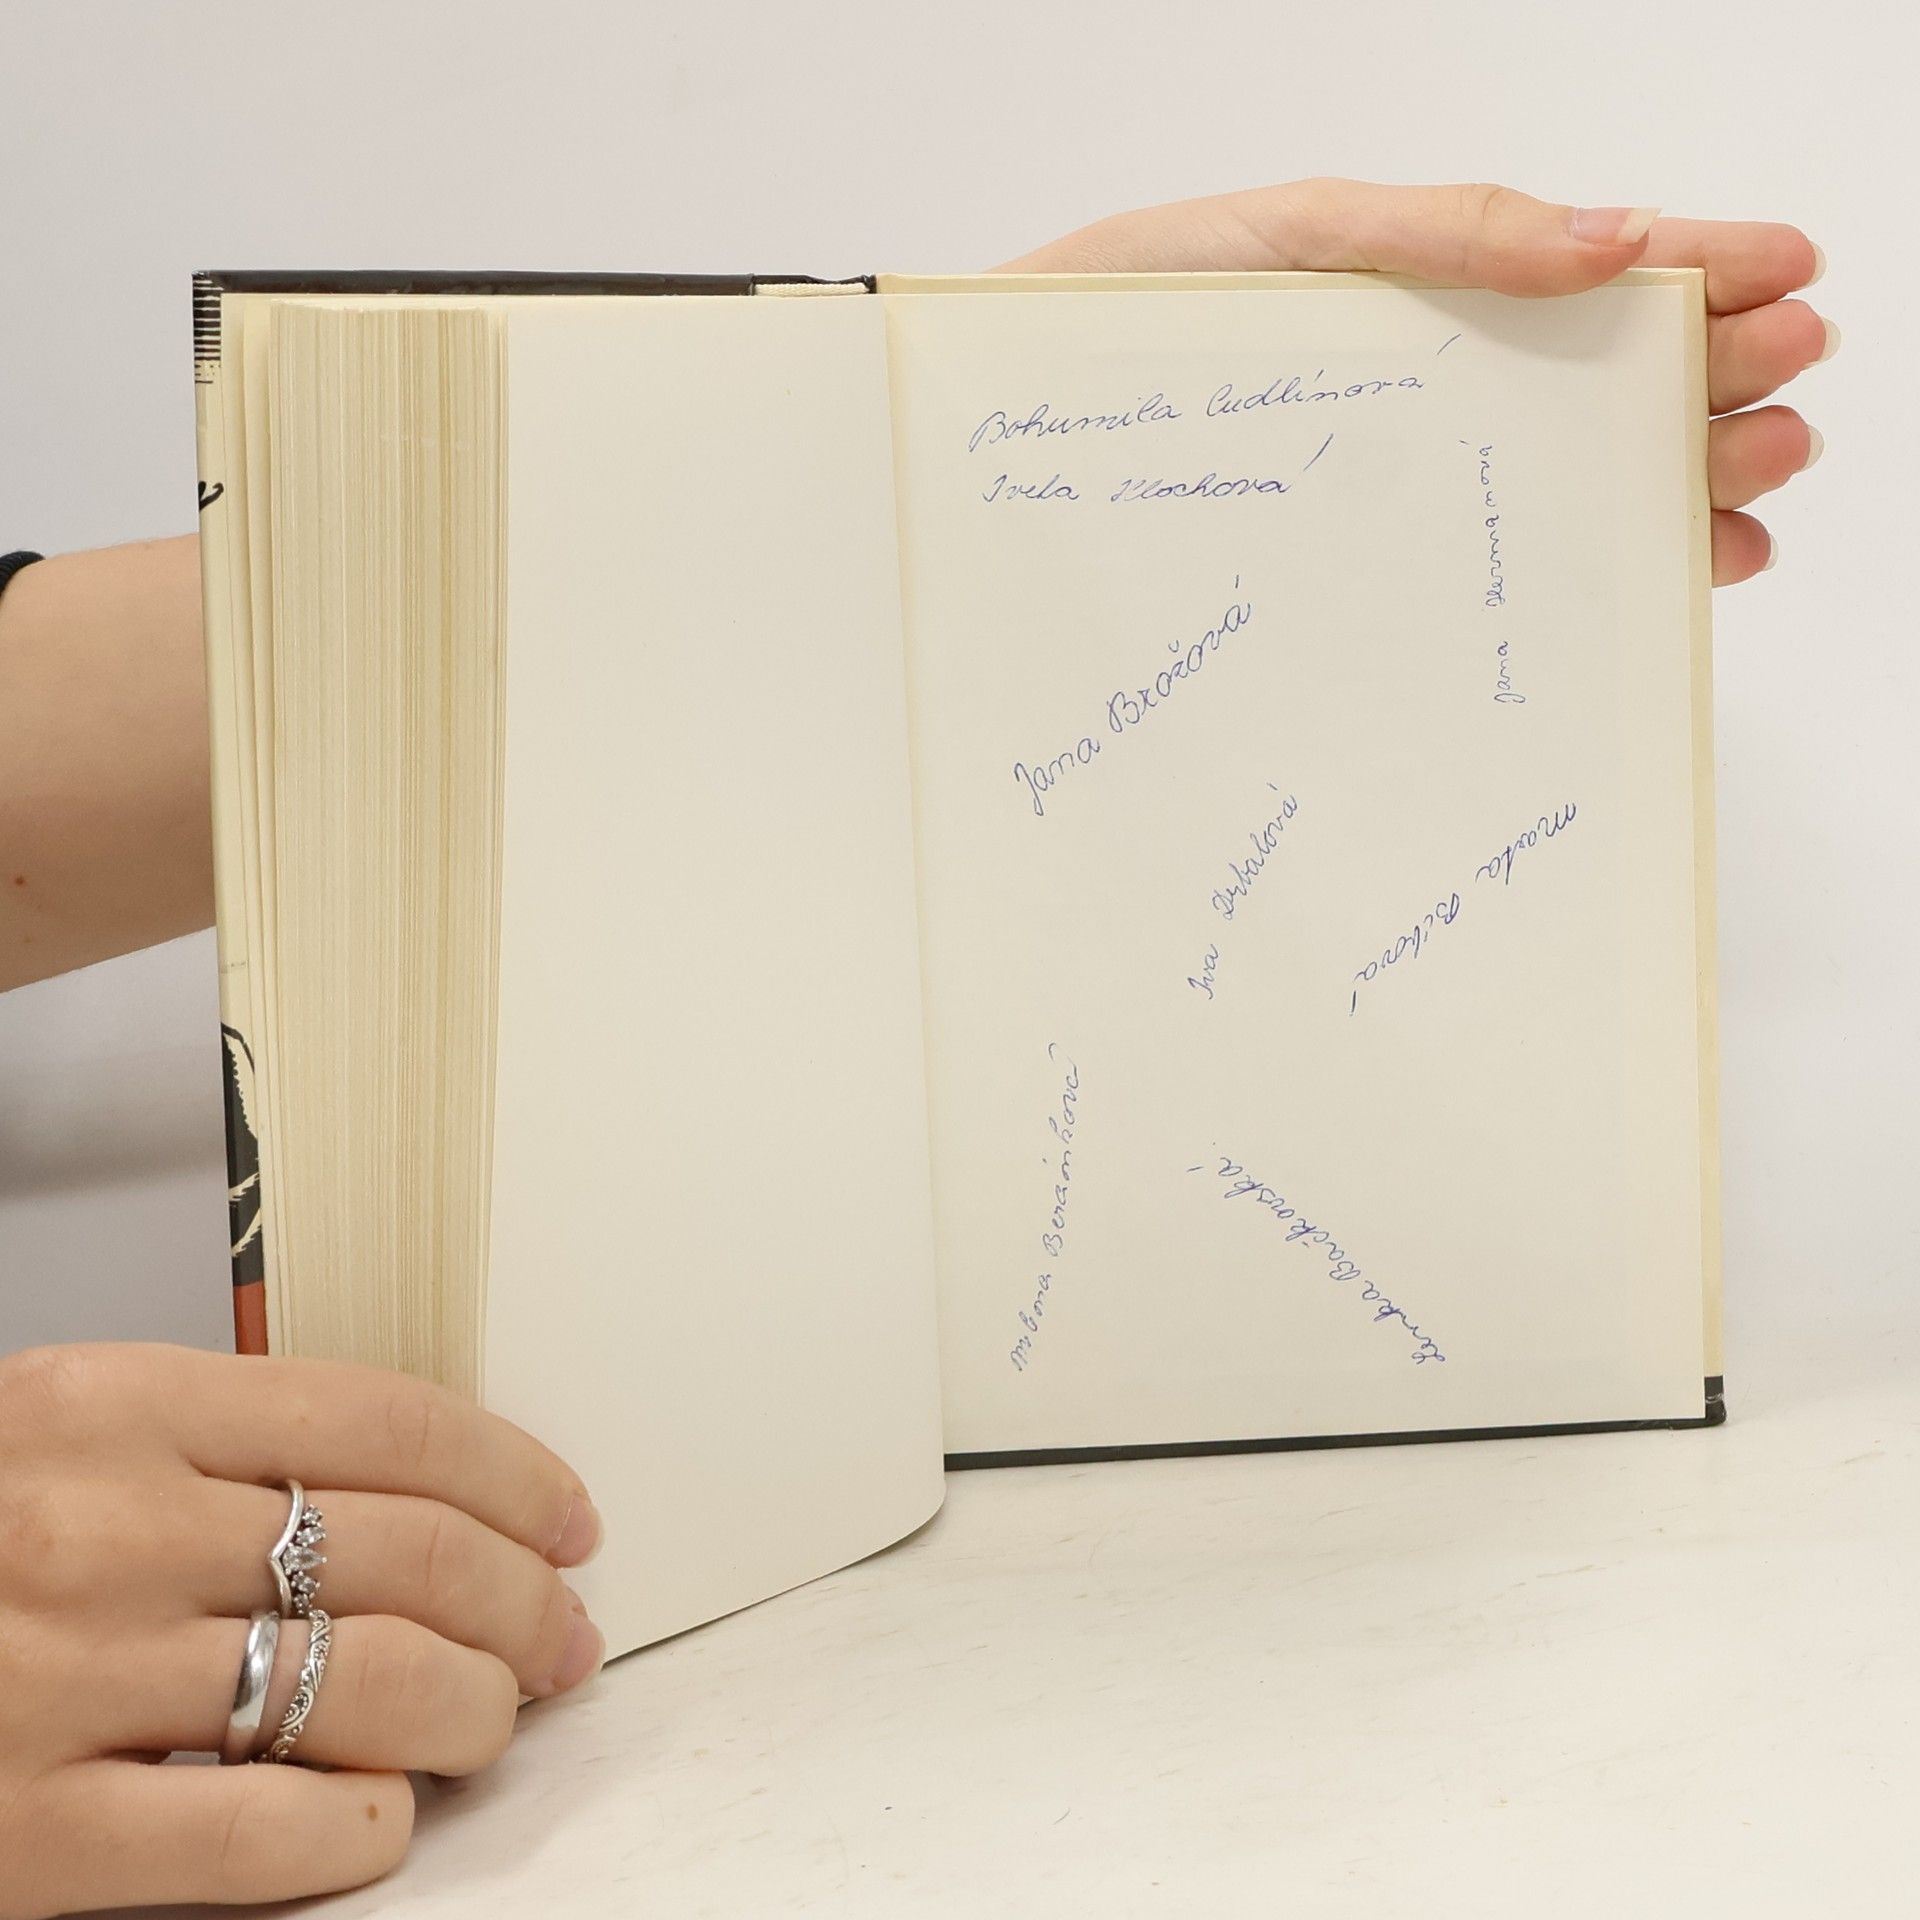 Bohumila Cudlínová
Iveta Klochová
Jana Heřmanová
Jana Brožová
Iva Drbalová
Marta Bílková
Milena Beránková
Lenka Bačkovská